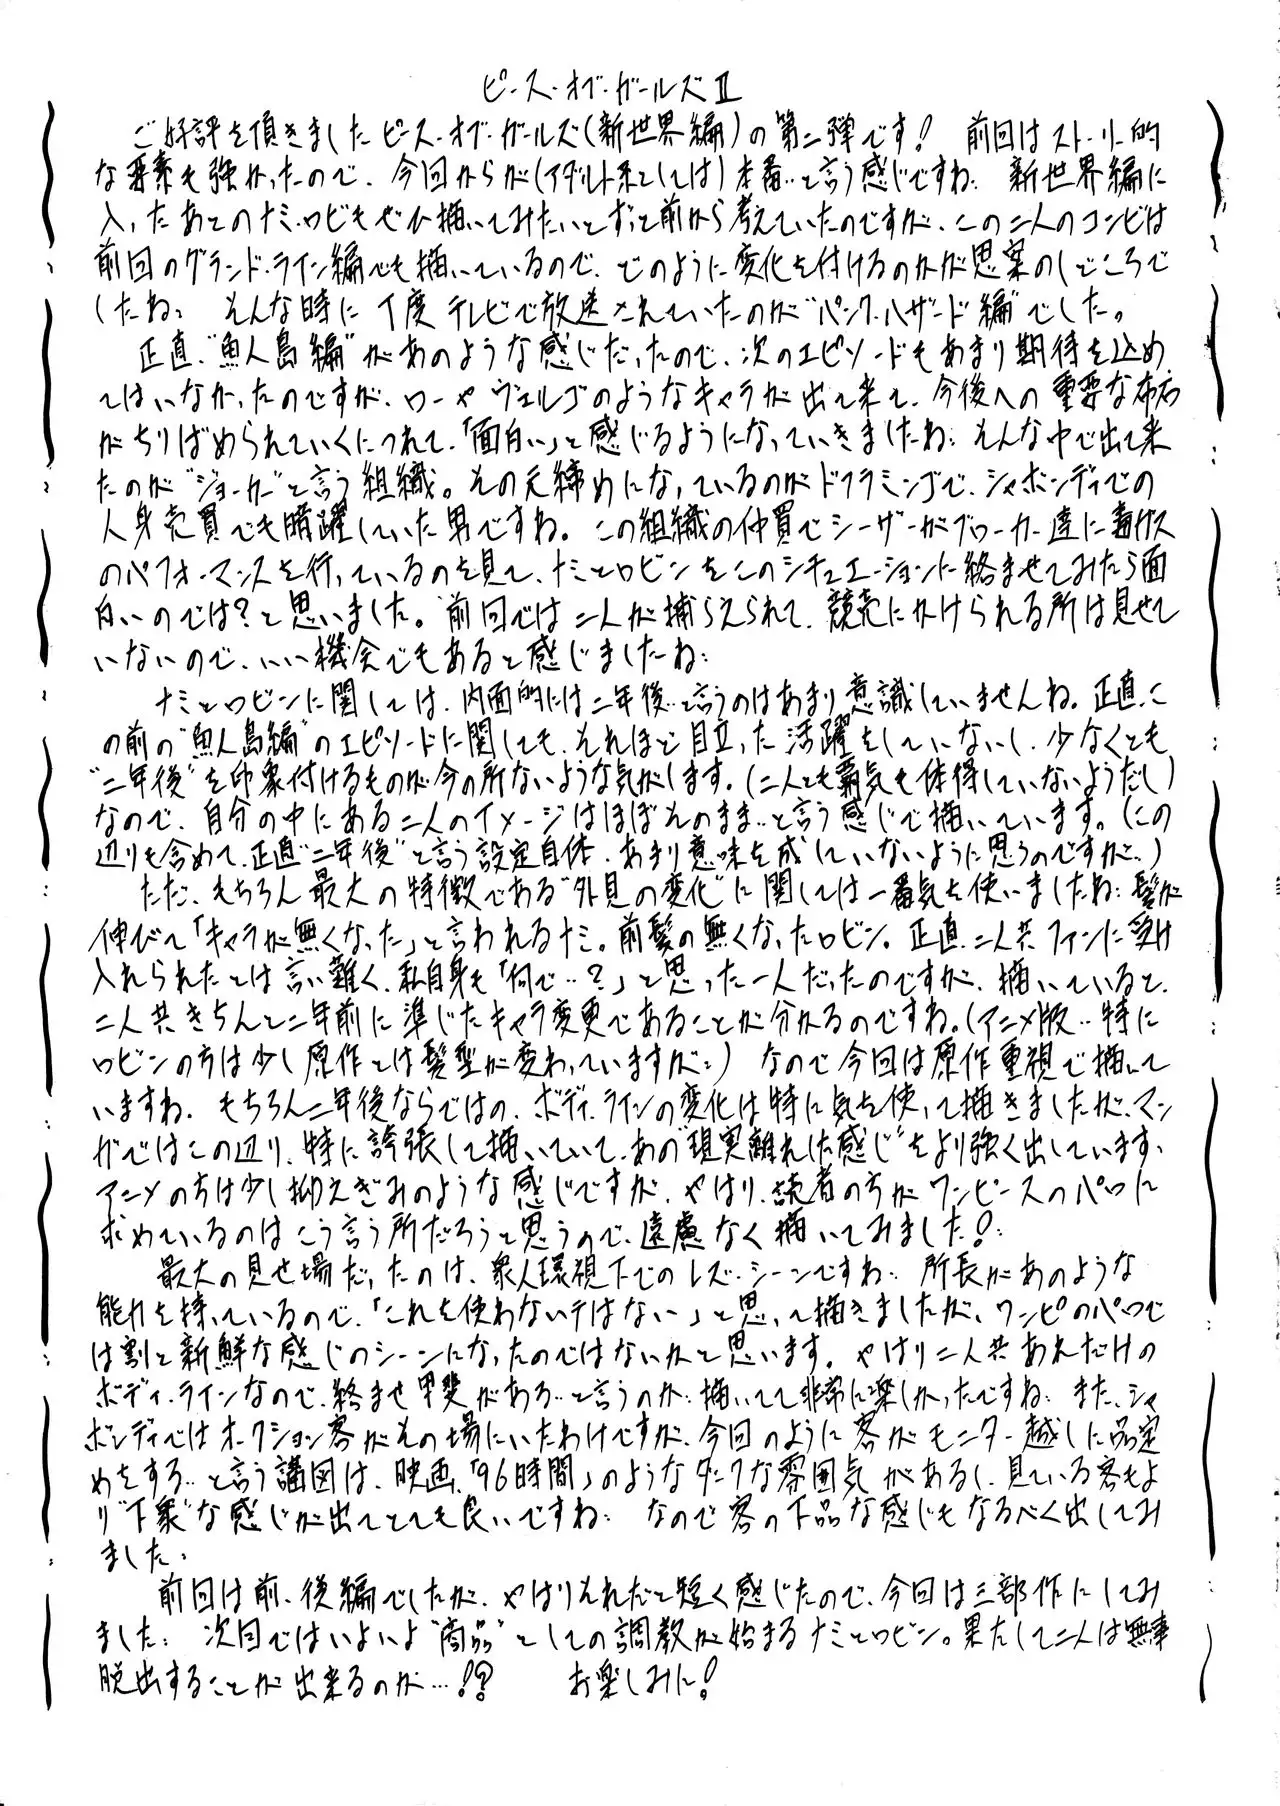 ピース・オブ・ガールズⅡ
ご好評を頂きましたピース・オブ・ガールズ(新世界編)の第二弾です! 前回はストーリー的
な要素も強かったので、今回からが(アダルト系としては)本番‥と言う感じですね‥ 新世界編に
入ったあとのナミ・ロビもぜひ描いてみたいとずっと前から考えていたのですが、この二人のコンビは
前回のグランド・ライン編でも描いているので、どのように変化を付けるのかが思案のしどころで
したね‥ そんな時に丁度テレビで放送されていたのが“パンク・ハザード編”でした。
正直、“魚人島編”があのような感じだったので、次のエピソードもあまり期待を込め
てはいなかったのですが、ローやヴェルゴのようなキャラが出て来て、今後への重要な布石
がちりばめられていくにつれて、「面白い」と感じるようになっていきましたね‥ そんな中で出て来
たのが“ジョーカー”と言う組織。その元締めになっているのがドフラミンゴで、シャボンディでの
人身売買でも暗躍していた男ですね。この組織の仲買でシーザーがブローカー達に毒ガス
のパフォーマンスを行っているのを見て、ナミとロビンをこのシチュエーションに絡ませてみたら面
白いのでは?と思いました。前回では二人が捕らえられて、競売にかけられる所は見せて
いないので、いい機会でもあると感じましたね‥
ナミとロビンに関しては、内面的には二年後‥と言うのはあまり意識していませんね。正直、こ
の前の“魚人島編”のエピソードに関しても、それほど目立った活躍をしていないし、少なくとも
“二年後”を印象付けるものが今の所ないような気がします。(二人とも覇気も体得していないようだし)
なので、自分の中にある二人のイメージはほぼそのまま‥と言う感じで描いています。(この
辺りも含めて、正直“二年後”と言う設定自体、あまり意味を成していないように思うのですが‥)
ただ、もちろん最大の特徴である“外見の変化”に関しては一番気を使いましたね‥髪が
伸びて「キャラが無くなった」と言われるナミ。前髪の無くなったロビン。正直、二人共ファンに受け
入れられたとは言い難く、私自身も「何で‥?」と思った一人だったのですが、描いていると、
二人共きちんと二年前に準じたキャラ変更であることが分かるのですね。(アニメ版‥特に
ロビンの方は少し原作とは髪型が変わっていますが‥) なので今回は原作重視で描いて
いますね。もちろん二年後ならではの、ボディ・ラインの変化は特に気を使って描きましたが、マン
ガではこの辺り、特に誇張して描いていて、あの“現実離れした感じ”をより強く出しています。
アニメの方は少し抑えぎみのような感じですが、やはり、読者の方がワンピースのパロに
求めているのはこう言う所だろうと思うので、遠慮なく描いてみました!
最大の見せ場だったのは、衆人環視下でのレズ・シーンですね‥ 所長があのような
能力を持っているので、「これを使わないテはない」と思って描きましたが、ワンピのパロで
は割と新鮮な感じのシーンになったのではないかと思います。やはり二人共あれだけの
ボディ・ラインなので、絡ませ甲斐がある‥と言うのか‥描いてて非常に楽しかったですね‥ また、シャ
ボンディではオークション客がその場にいたわけですが、今回のように客がモニター越しに品定
めをする‥と言う構図は、映画、「96時間」のようなダークな雰囲気があるし、見ている客もよ
り“下衆”な感じが出てとても良いですね‥ なので客の下品な感じもなるべく出してみ
ました。
前回は前・後編でしたが、やはりそれだと短く感じたので、今回は三部作にしてみ
ました‥ 次回ではいよいよ“商品”としての調教が始まるナミとロビン。果たして二人は無事
脱出することが出来るのか…!? お楽しみに!